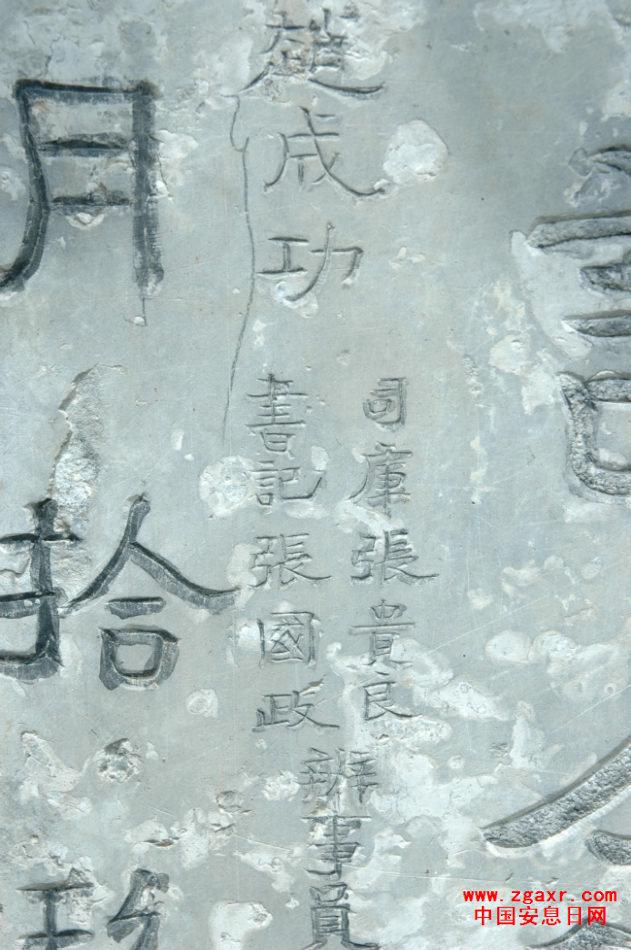 趙成功
司庫張貴良
書記張國政
辦事員
月拾
www.zgaxr.com
中国安息日网